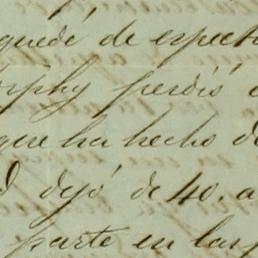 quedé de espect
rphy perdió
que ha hecho d
dejó de 40. a
parte en las